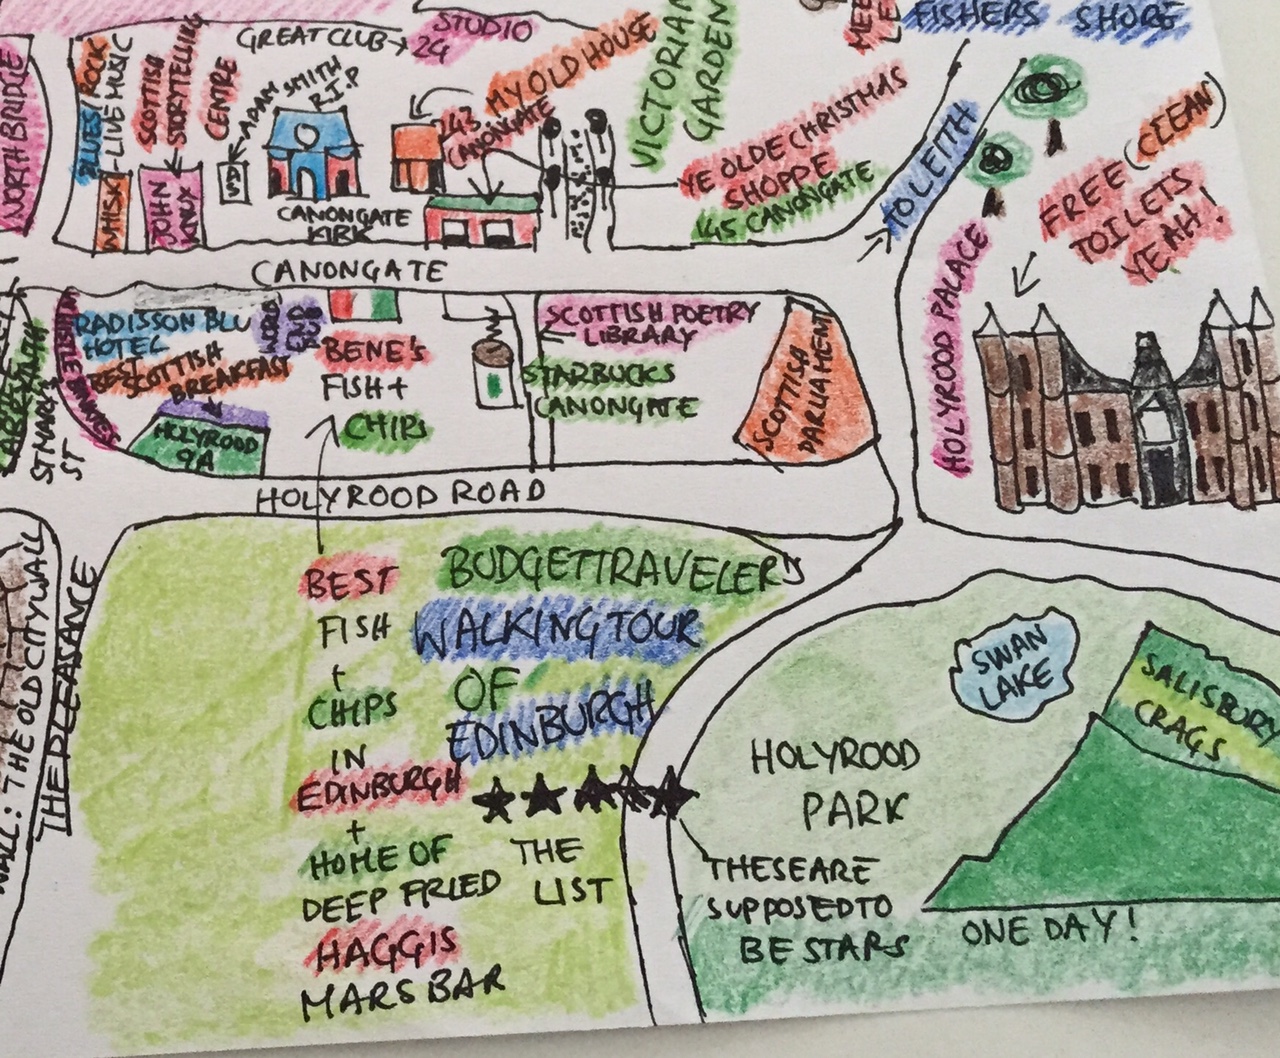 NORTH BRIDGE
BLUES / ROCK
-LIVE MUSIC
SCOTTISH
STORYTELLING
CENTRE
GREAT CLUB
STUDIO
24
ADAM SMITH
R.I.P
AS
WHISK
JOHN
KNOX
CANONGATE
KIRK
MY OLD HOUSE
243
CANONGATE
VICTORIAN
GARDEN
YE OLDE CHRISTMAS
SHOPPE
145 CANONGATE
FISHERS SHORE
TO LEITH
FREE (CLEAN)
TOILETS
YEAH!
HOLYROOD PALACE
CANONGATE
RADISSON BLU
HOTEL
BEST
SCOTTISH
BREAKFAST
HOLYROOD
9A
ST MARY'S
ST
BENE'S
FISH +
CHIPS
SCOTTISH POETRY
LIBRARY
STARBUCKS
CANONGATE
SCOTTISH
PARLIAMENT
HOLYROOD ROAD
THE PLEASANCE
WALL: THE OLD CITY WALL
BEST
FISH
+
CHIPS
IN
EDINBURGH
+
HOME OF
DEEP FRIED
HAGGIS
MARS BAR
BUDGETTRAVELER
WALKING TOUR
OF
EDINBURGH
THE
LIST
SWAN
LAKE
SALISBURY
CRAGS
HOLYROOD
PARK
THESE ARE
SUPPOSED TO
BE STARS
ONE DAY!